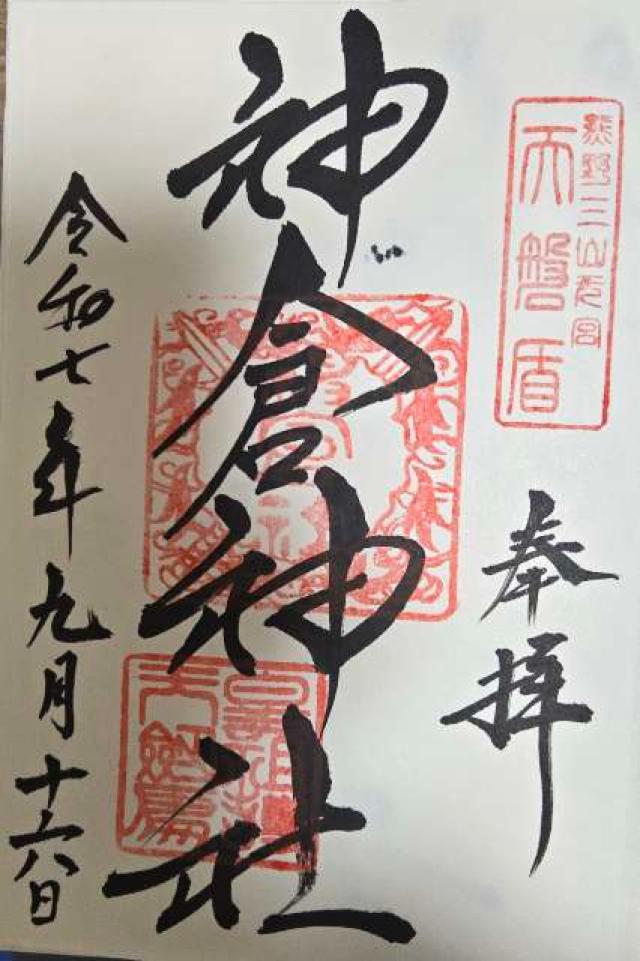 熊野三山元宮
天磐盾
奉拝
神倉神社
令和七年九月十六日